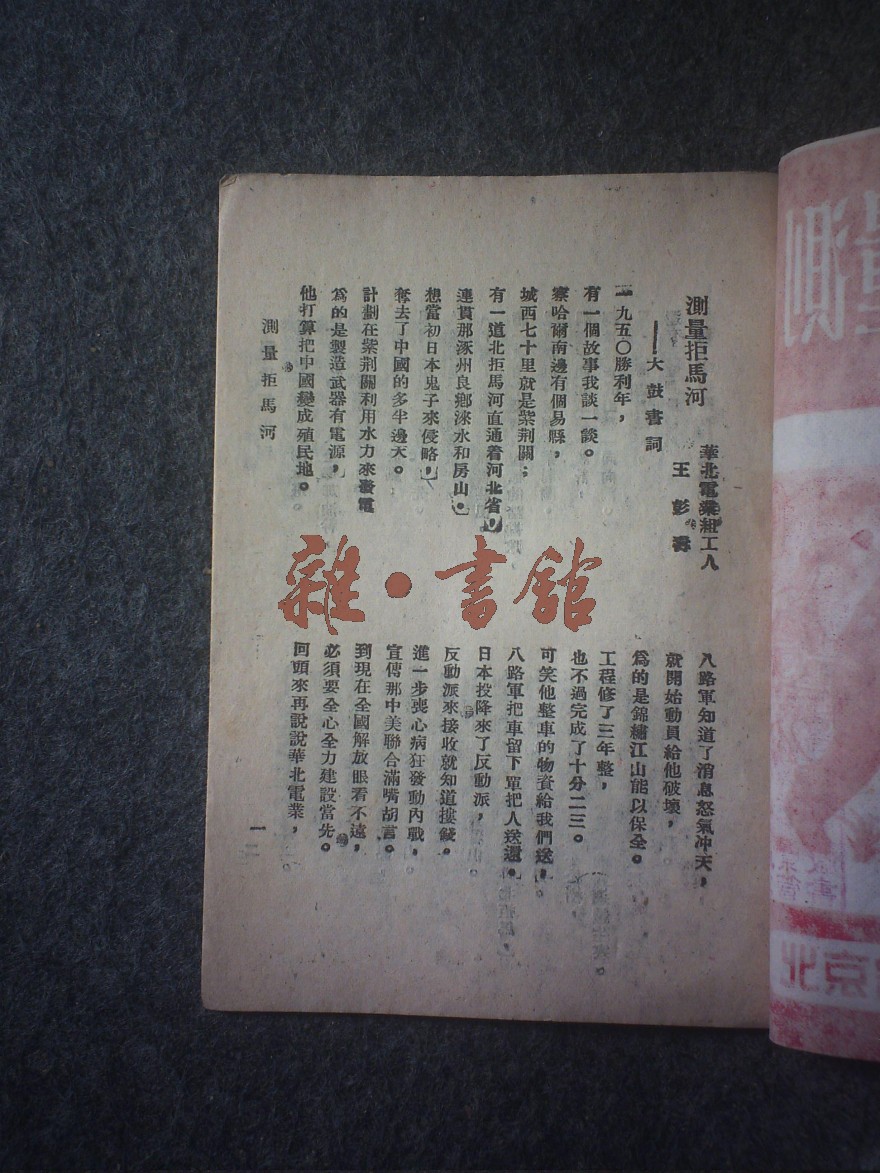 測量拒馬河
——大鼓書詞
華北電業組工人
王彭壽
一九五〇勝利年，
有一個故事我談一談。
察哈爾南邊有個易縣，
城西七十里就是紫荆關；
有一道北拒馬河直通着河北省，
連貫那涿州良鄉淶水和房山。
想當初日本鬼子來侵略，
奪去了中國的多半邊天。
計劃在紫荆關利用水力來發電
爲的是製造武器有電源，
他打算把中國變成殖民地。
八路軍知道了消息怒氣冲天，
就開始動員給他破壞，
爲的是錦繡江山能以保全。
工程修了三年整，
也不過完成了十分二三。
可笑他整車的物資給我們送，
八路軍把車留下單把人送還。
日本投降來了反動派，
反動派來接收就知道摟錢。
進一步喪心病狂發動內戰，
宣傳那中美聯合滿嘴胡言。
到現在全國解放眼看不遠，
必須要全心全力建設當先。
回頭來再說說華北電業，
測量拒馬河
一
雜·書館
測量
北京